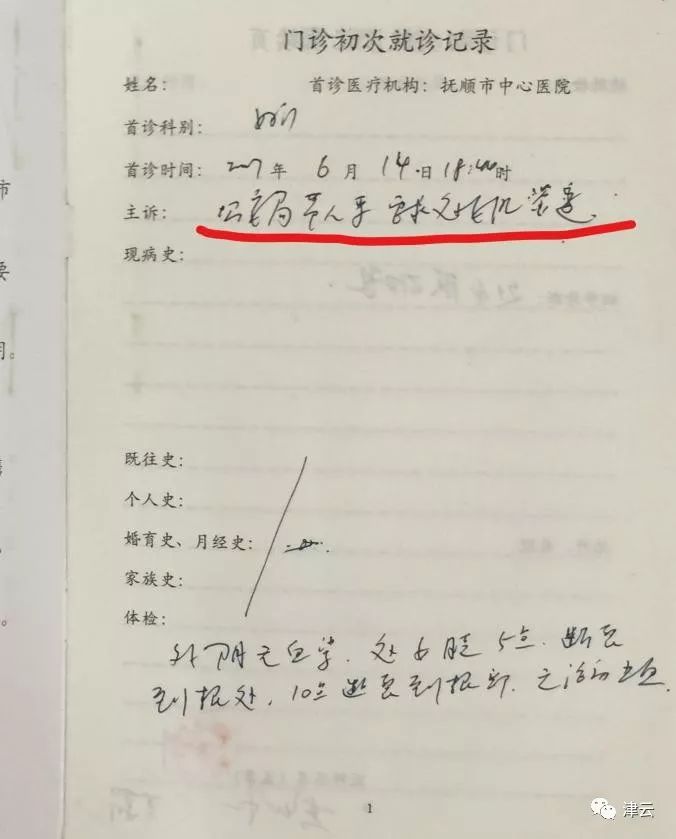 门诊初次就诊记录
姓名: 首诊医疗机构: 抚顺市中心医院
首诊科别: 妇科
首诊时间: 2017年 6月 14日 18:40时
主诉: 公安局 带人来 要求 处
现病史:
既往史:
个人史:
婚育史、月经史:
家族史:
体检:
外阴无血. 处女膜 5点. 断裂
到根处, 10点 断裂到根部.
1
津云
市
要
用。